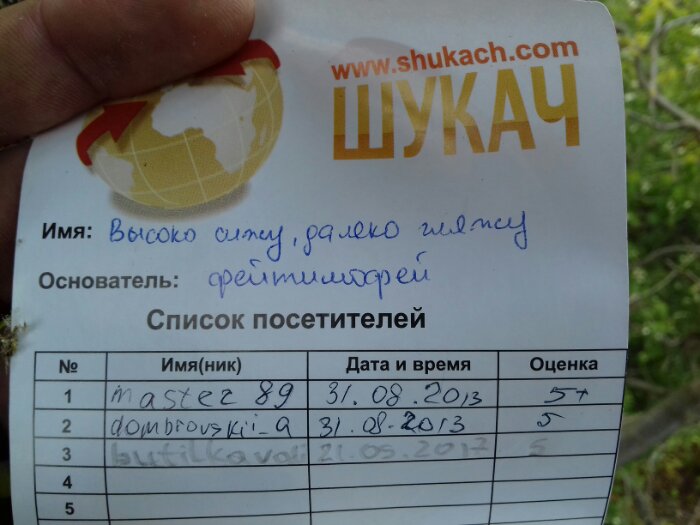 www.shukach.com
ШУКАЧ
Имя: Высоко сижу, далеко гляжу
Основатель: фейтимофей
Список посетителей
№ Имя(ник) Дата и время Оценка
1 master 89 31.08.2013 5+
2 dombrovskii_a 31.08.2013 5
3 21.05.2017 5
4
5